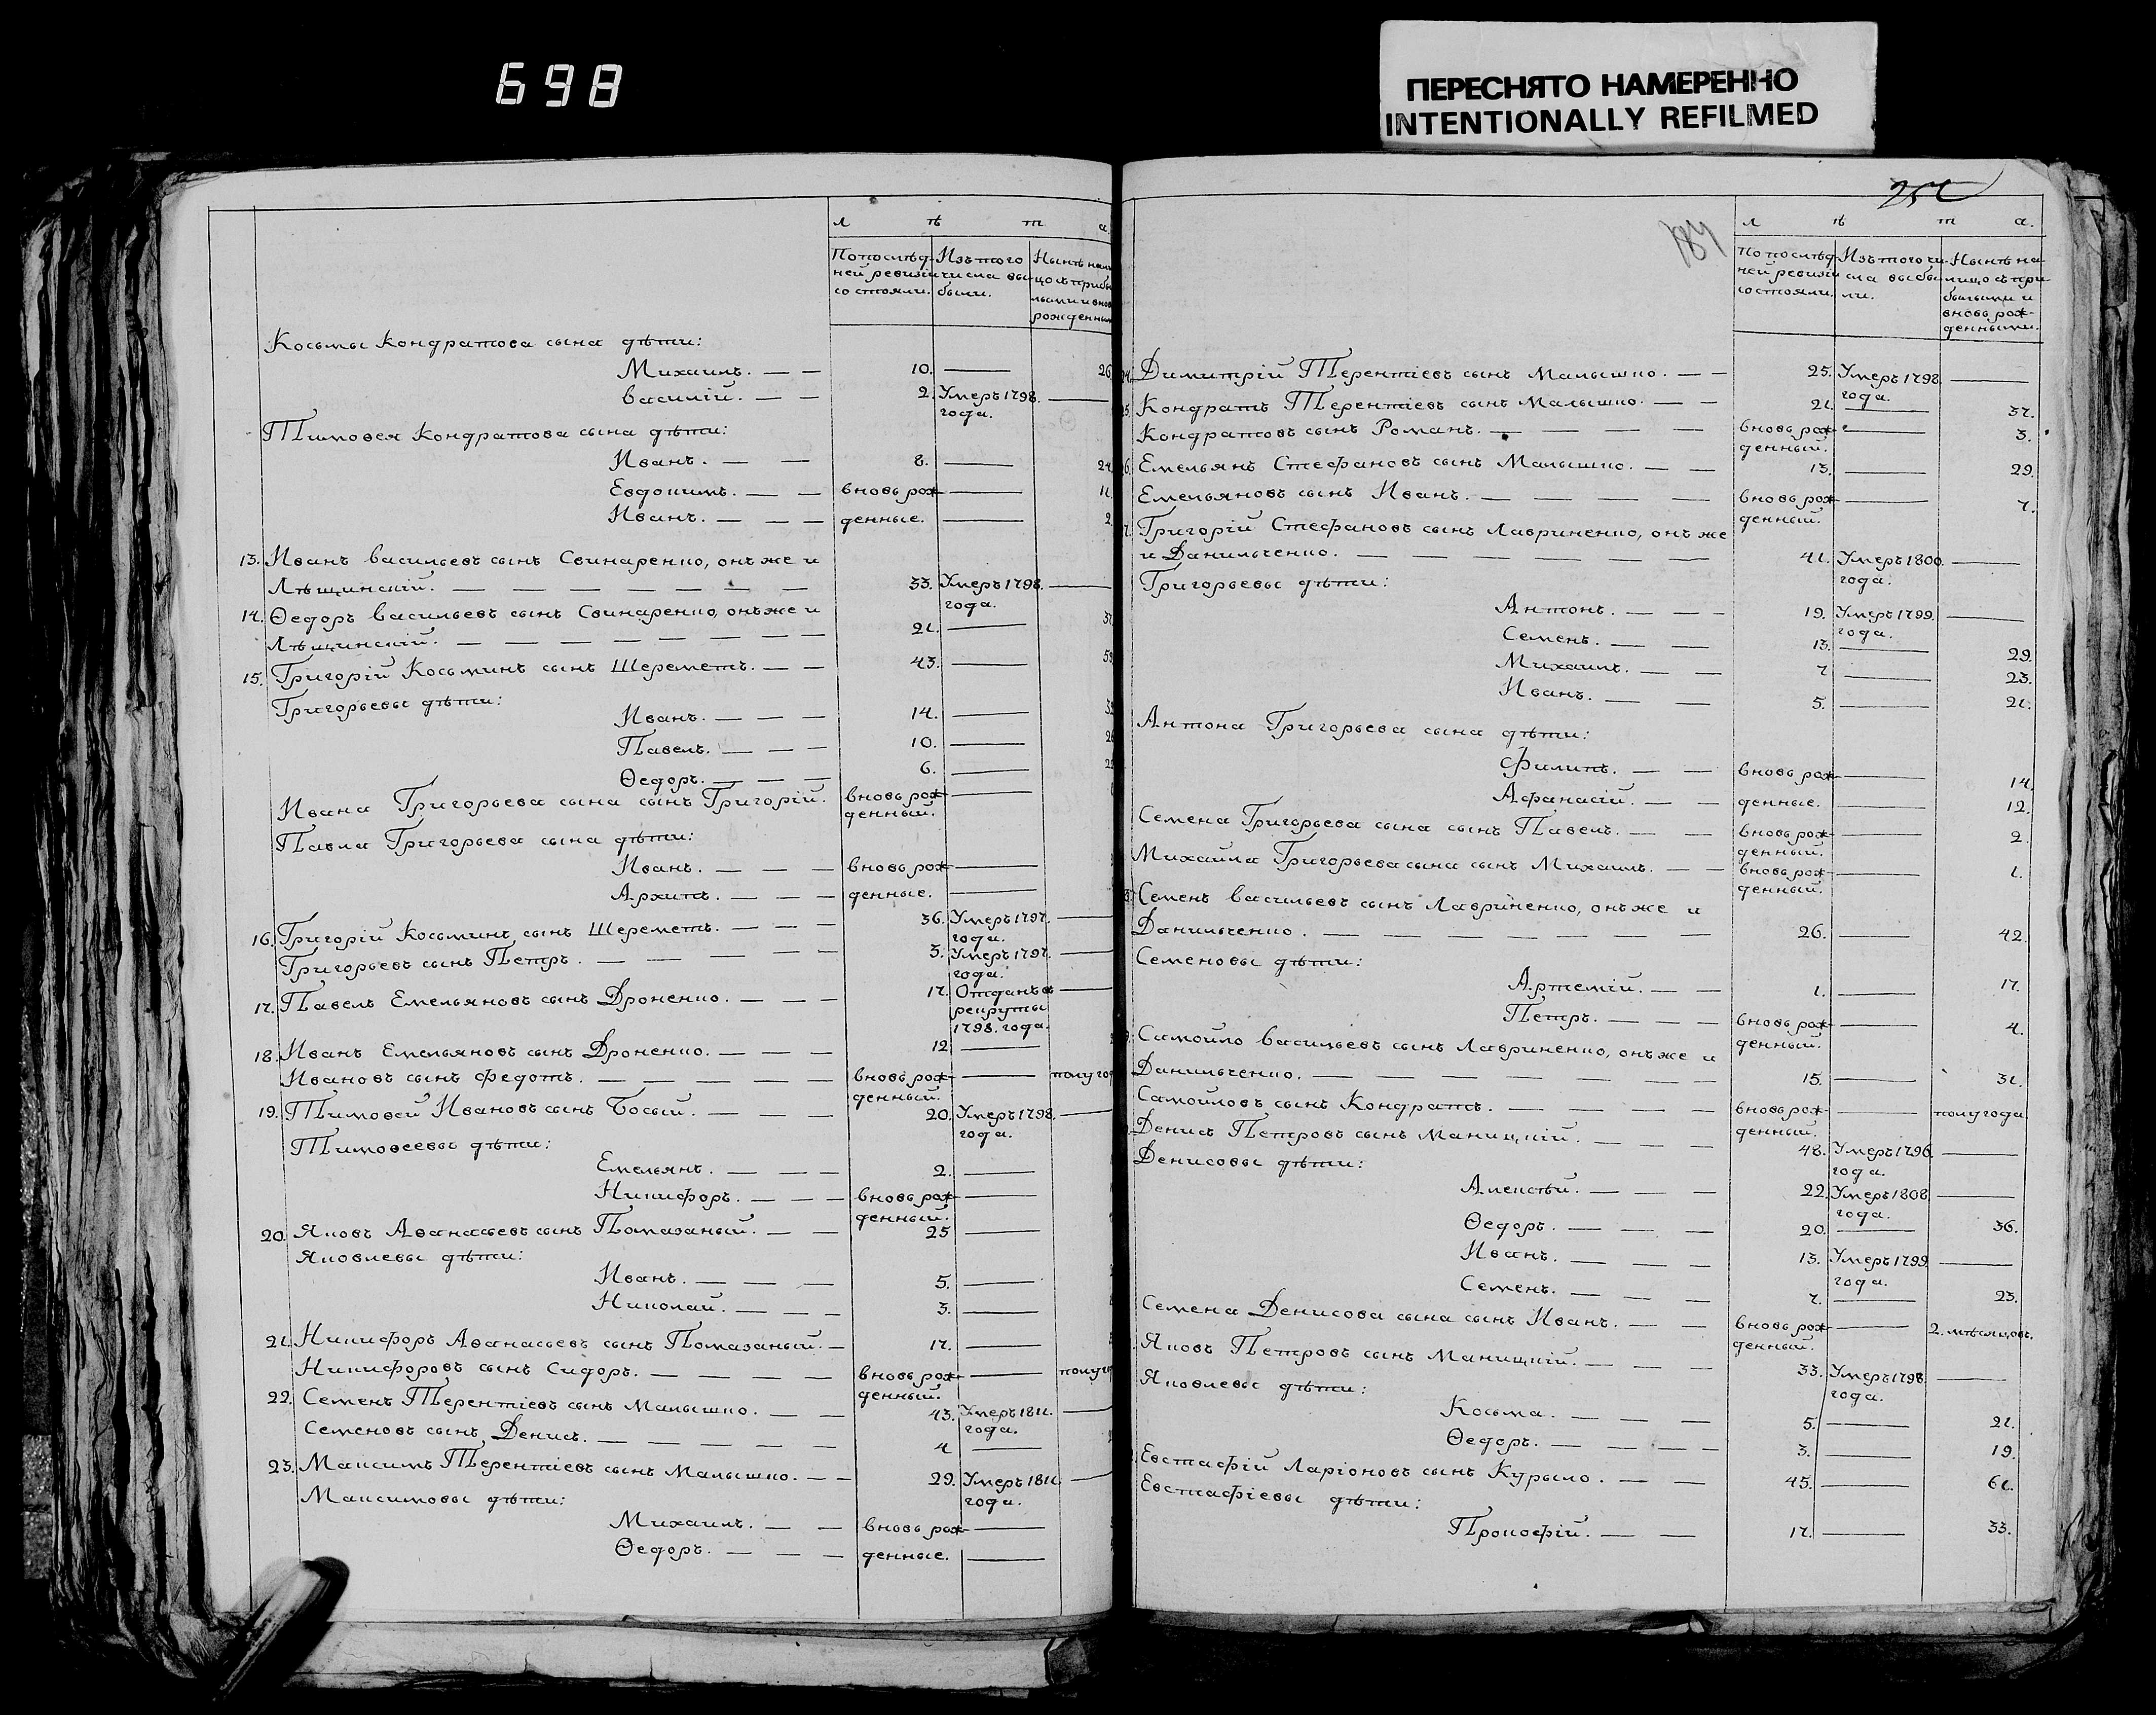 698
ПЕРЕСНЯТО НАМЕРЕННО
INTENTIONALLY REFILMED
л ѣ т а.
По послѣд- Изъ того Нынѣ
ней ревизіи числа вы-
состояли. были.
Косьмы Кондратова сына дѣти:
Михаилъ. — — 10. —— 26
Василій. — — 2. Умеръ 1798. ——
года.
Тимовея Кондратова сына дѣти:
Иванъ. — — 8. —— 24
Евдокимъ. — — вновь рож- —— 11
Иванъ. — — — денные. —— 2.
13. Иванъ Васильевъ сынъ Свинаренко, онъ же и
Лѣщинскій. — — — — — — — 33. Умеръ 1798. ——
года.
14. Ѳедоръ Васильевъ сынъ Свинаренко, онъ же и
Лѣщинскій. — — — — — — — 21. ——
15. Григорій Косьминъ сынъ Шереметъ. — — 43. ——
Григорьевы дѣти:
Иванъ. — — — 14. ——
Павелъ. — — — 10. ——
Ѳедоръ. — — — 6. ——
Ивана Григорьева сына сынъ Григорій. вновь рож- ——
денный.
Павла Григорьева сына дѣти:
Иванъ. — — — вновь рож- ——
Архипъ. — — — денные. ——
16. Григорій Косьминъ сынъ Шереметъ. — — — 36. Умеръ 1797. ——
года.
Григорьевъ сынъ Петръ. — — — — — 3. Умеръ 1797. ——
года.
17. Павелъ Емельяновъ сынъ Дроненко. — — — 17. Отданъ въ ——
рекруты
1798. года.
18. Иванъ Емельяновъ сынъ Дроненко. — — — 12. ——
Ивановъ сынъ Федотъ. — — — — — вновь рож- ——
денный.
19. Тимовей Ивановъ сынъ Босый. — — — 20. Умеръ 1798. ——
года.
Тимовеевы дѣти:
Емельянъ. — — — 2. ——
Никифоръ. — — — вновь рож- ——
денный.
20. Яковъ Аванасьевъ сынъ Помазаный. — — 25 ——
Яковлевы дѣти:
Иванъ. — — — 5. ——
Николай. — — — 3. ——
21. Никифоръ Аванасьевъ сынъ Помазаный. — 17. ——
Никифоровъ сынъ Сидоръ. — — — — вновь рож- ——
денный.
22. Семенъ Терентіевъ сынъ Малышко. — — 43. Умеръ 1811. ——
года.
Семеновъ сынъ Денисъ. — — — — — 1 ——
23. Максимъ Терентіевъ сынъ Малышко. — — 29. Умеръ 1811. ——
года.
Максимовы дѣти:
Михаилъ. — — вновь рож- ——
Ѳедоръ. — — — денные. ——
184
л ѣ т а.
По послѣд- Изъ того чи- Нынѣ на-
ней ревизіи сла выбы- лицо съ при-
состояли. ли. былыми и
вновь рож-
денными.
Димитрій Терентіевъ сынъ Малышко. — — 25. Умеръ 1798. ——
года.
Кондратъ Терентіевъ сынъ Малышко. — — 21. —— 37.
Кондратовъ сынъ Романъ. — — — — вновь рож- —— 3.
денный.
Емельянъ Стефановъ сынъ Малышко. — — 13. —— 29.
Емельяновъ сынъ Иванъ. — — — — вновь рож- —— 7.
денный.
Григорій Стефановъ сынъ Лавриненко, онъ же
и Данильченко. — — — — — — 41. Умеръ 1800. ——
года.
Григорьевы дѣти:
Антонъ. — — — 19. Умеръ 1799. ——
года.
Семенъ. — — 13. —— 29.
Михаилъ. — — 7 —— 23.
Иванъ. — — 5. —— 21.
Антона Григорьева сына дѣти:
Филипъ. — — вновь рож- —— 14.
Афанасій. — — денные. —— 12.
Семена Григорьева сына сынъ Павелъ. — — вновь рож- —— 2.
денный.
Михайла Григорьева сына сынъ Михаилъ. — — вновь рож- —— 1.
денный.
Семенъ Васильевъ сынъ Лавриненко, онъ же и
Данильченко. — — — — — — 26. —— 42.
Семеновы дѣти:
Артемій. — — 1. —— 17.
Петръ. — — — вновь рож- —— 4.
денный.
Самойло Васильевъ сынъ Лавриненко, онъ же и
Данильченко. — — — — — — 15. —— 31.
Самойловъ сынъ Кондратъ. — — — — вновь рож- —— полугода
денный.
Денисъ Петровъ сынъ Маницкій. — — — 48. Умеръ 1796. ——
года.
Денисовы дѣти:
Алексѣй. — — — 22. Умеръ 1808 ——
года.
Ѳедоръ. — — — 20. —— 36.
Иванъ. — — — 13. Умеръ 1799 ——
года.
Семенъ. — — — 7. —— 23.
Семена Денисова сына сынъ Иванъ. — — вновь рож- —— 2. мѣсяцовъ.
денный.
Яковъ Петровъ сынъ Маницкій. — — — 33. Умеръ 1798. ——
года.
Яковлевы дѣти:
Косьма. — — — 5. —— 21.
Ѳедоръ. — — — — 3. —— 19.
Евстафій Ларіоновъ сынъ Курыло. — — 45. —— 61.
Евстафіевы дѣти:
Прокофій. — — 17. —— 33.